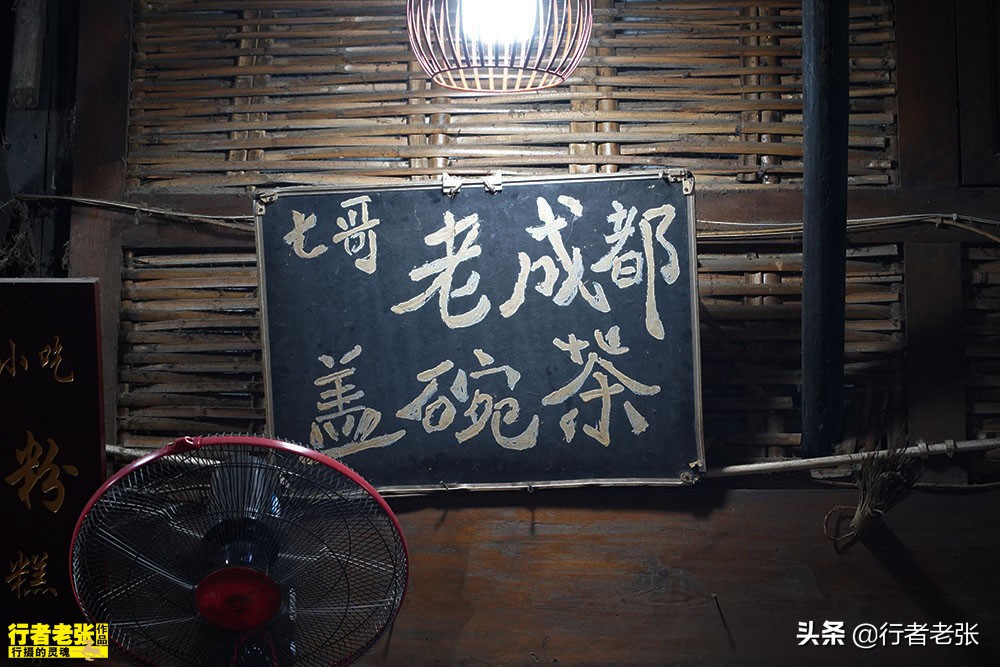 七哥 老成都
盖碗茶
小吃
粉
糕
行者老张作品
行摄的灵魂
头条 @行者老张